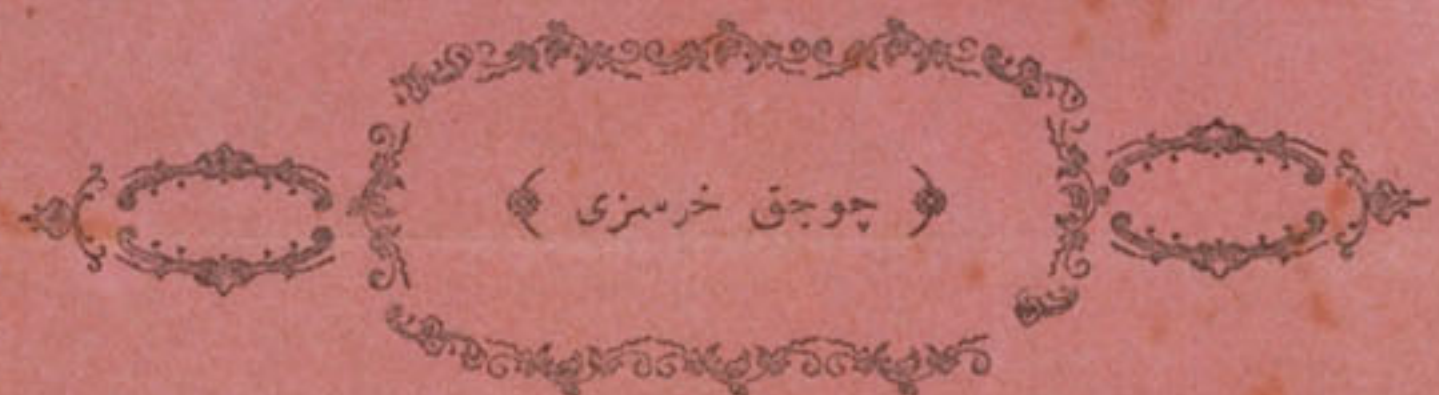 ﴿ چوجق خرسزی ﴾